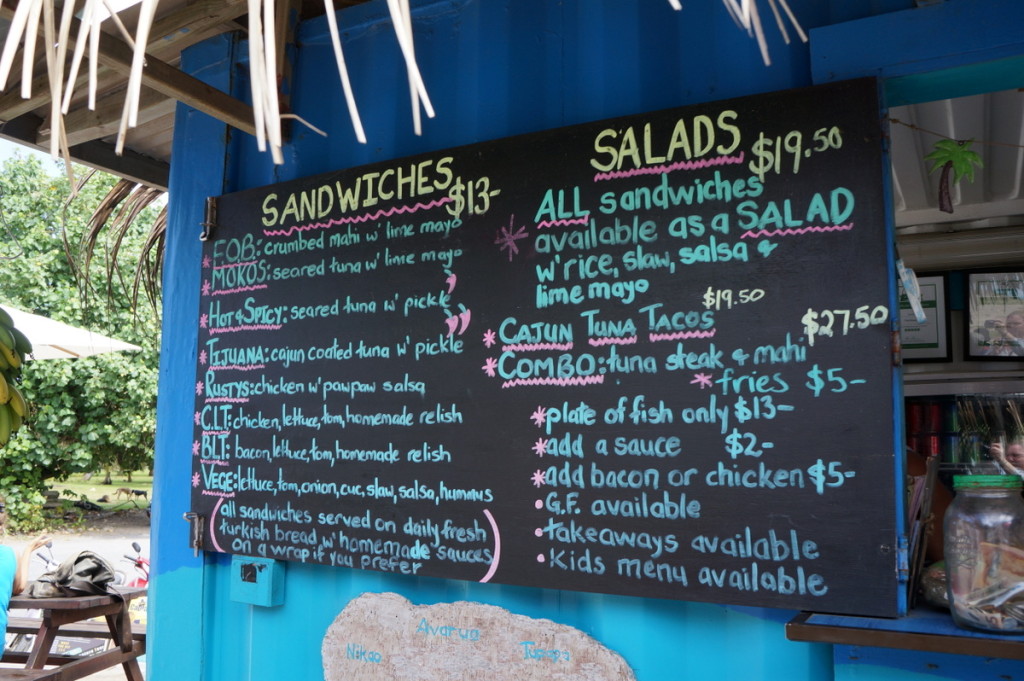 SANDWICHES $13-
* F.O.B: crumbed mahi w' lime mayo
* MOKOS: seared tuna w' lime mayo
* HOT & SPICY: seared tuna w' pickle
* TIJUANA: cajun coated tuna w' pickle
* RUSTYS: chicken w' pawpaw salsa
* C.L.T: chicken, lettuce, tom, homemade relish
* BLT: bacon, lettuce, tom, homemade relish
* VEGE: lettuce, tom, onion, cuc, slaw, salsa, hummus
(all sandwiches served on daily fresh
turkish bread w' homemade sauces
on a wrap if you prefer)
SALADS $19.50
* ALL sandwiches
available as a SALAD
w' rice, slaw, salsa &
lime mayo
* CAJUN TUNA TACOS $19.50
* COMBO: tuna steak & mahi $27.50
* fries $5-
* plate of fish only $13-
* add a sauce $2-
* add bacon or chicken $5-
• G.F. available
• takeaways available
• Kids menu available
Avarua
Nikao